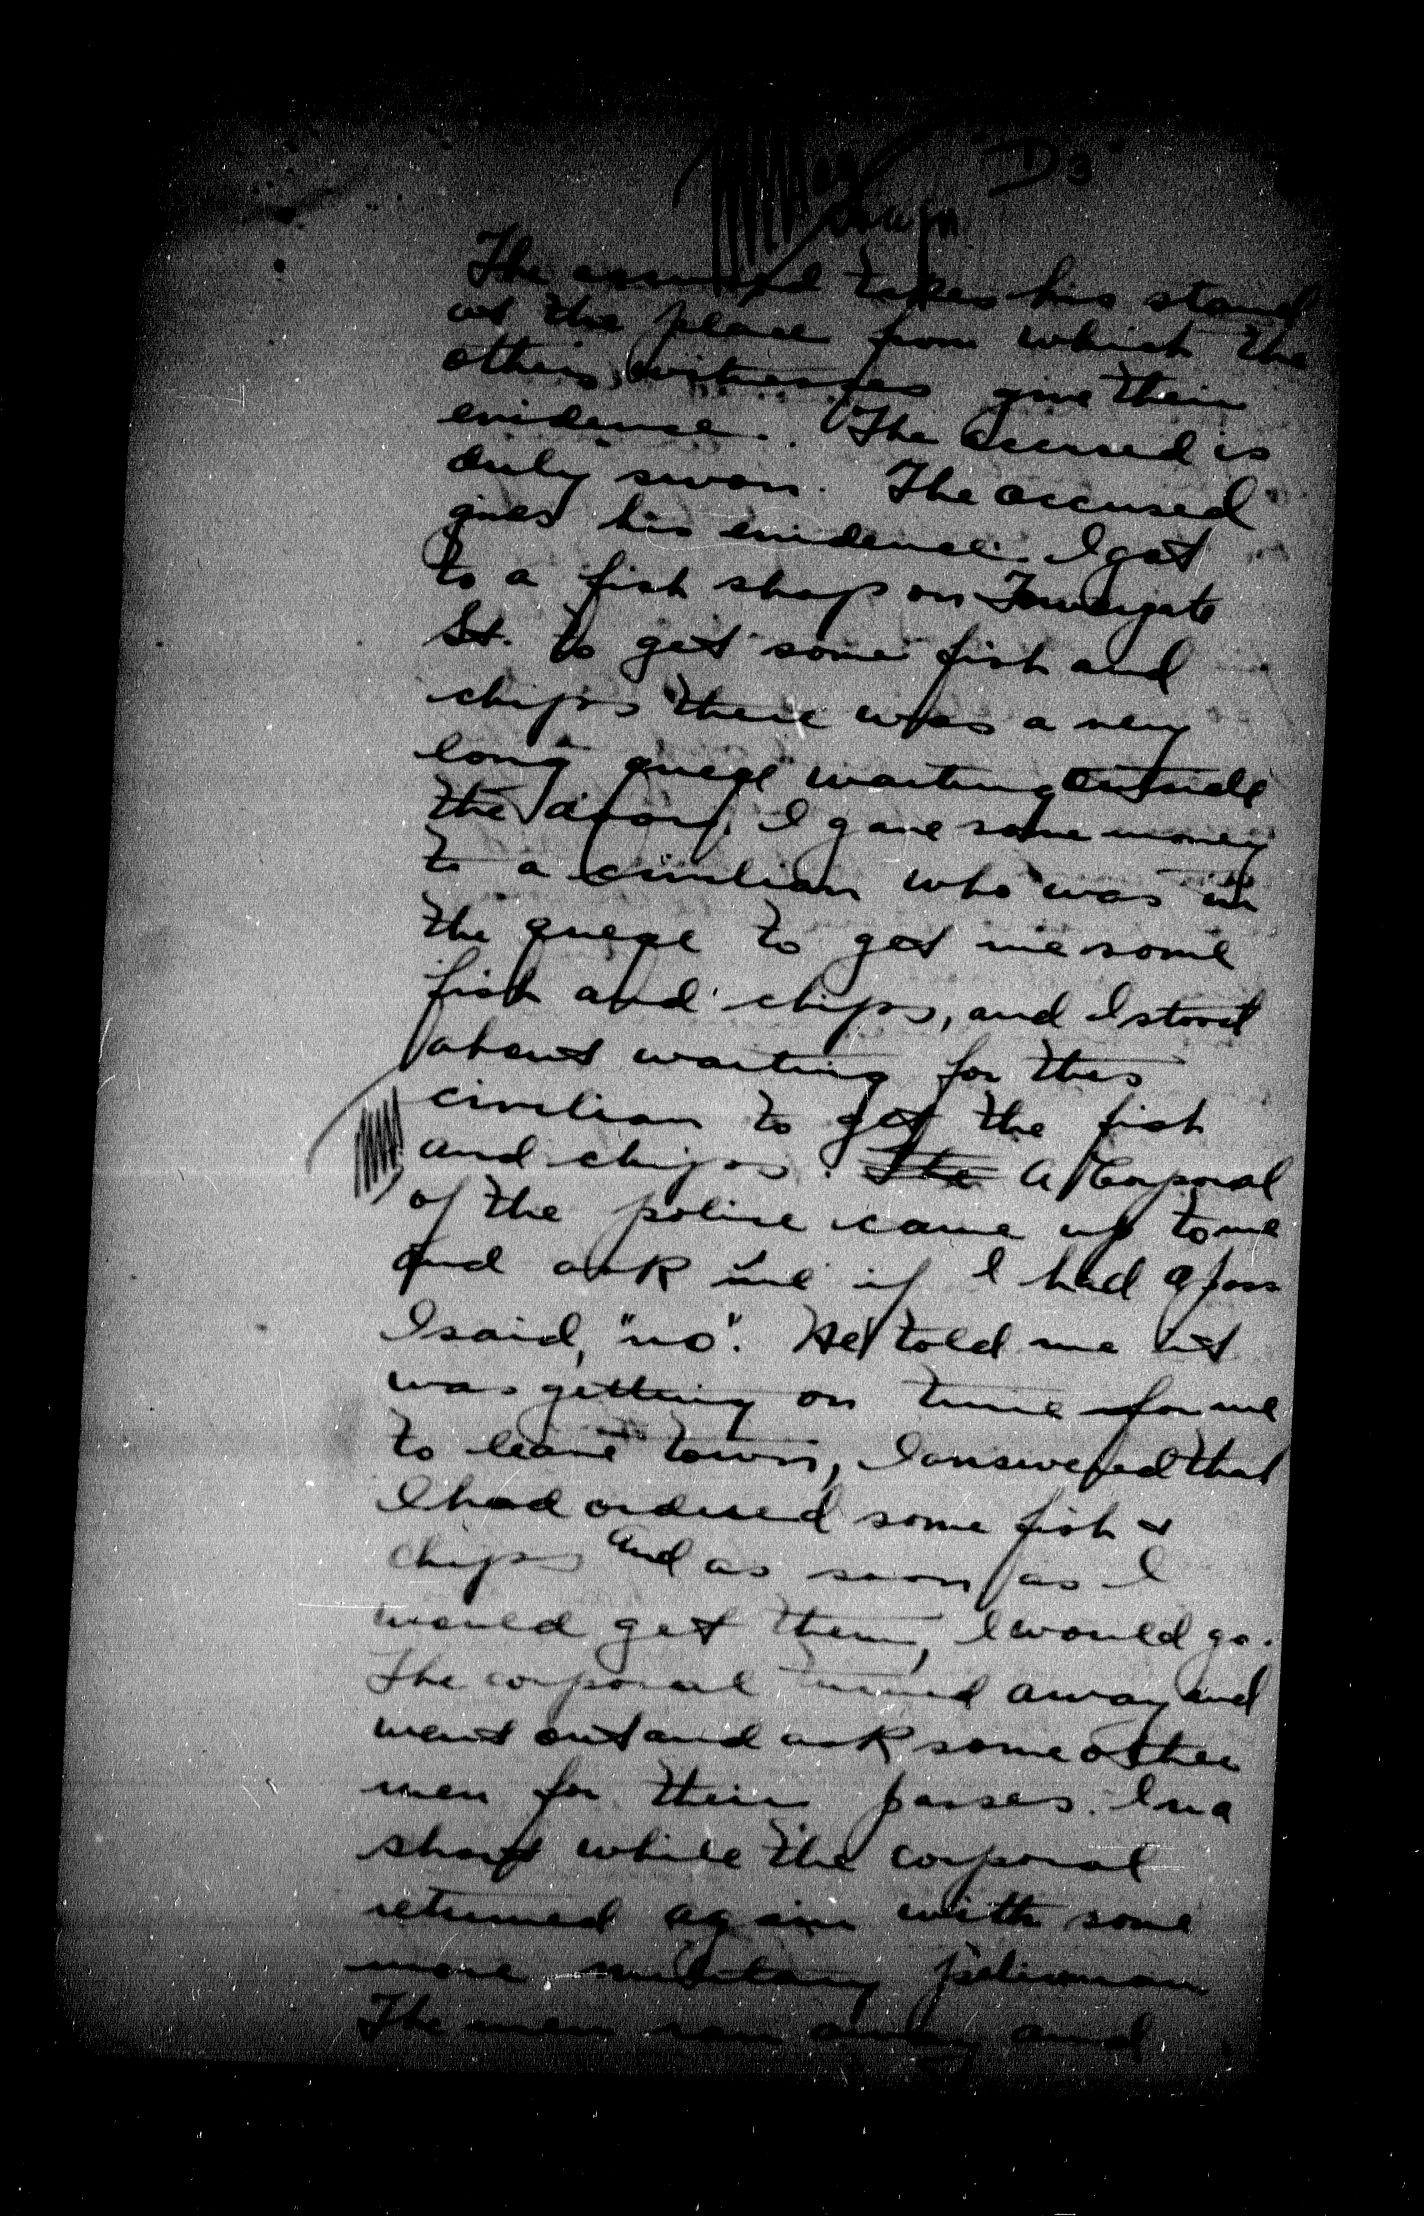 "D3"
The accused takes his stand
at the place from which the
others witnesses give their
evidence. The accused is
duly sworn. The accused
gives his evidence. I got
to a fish shop on Towergate
St. to get some fish and
chips there was a very
long queqe waiting outside
the door. I gave some money
to a civilian who was in
the queqe to get me some
fish and chips, and I stood
about waiting for this
civilian to get the fish
and chips. The A Corporal
of the police came up to me
and ask me if I had a pass
I said, "no". He told me it
was getting on time for me
to leave town, I answered that
I had ordered some fish &
chips and as soon as I
would get them, I would go.
The corporal turned away and
went out and ask some other
men for their passes. In a
short while the corporal
returned again with some
more military policeman
The men ran away and